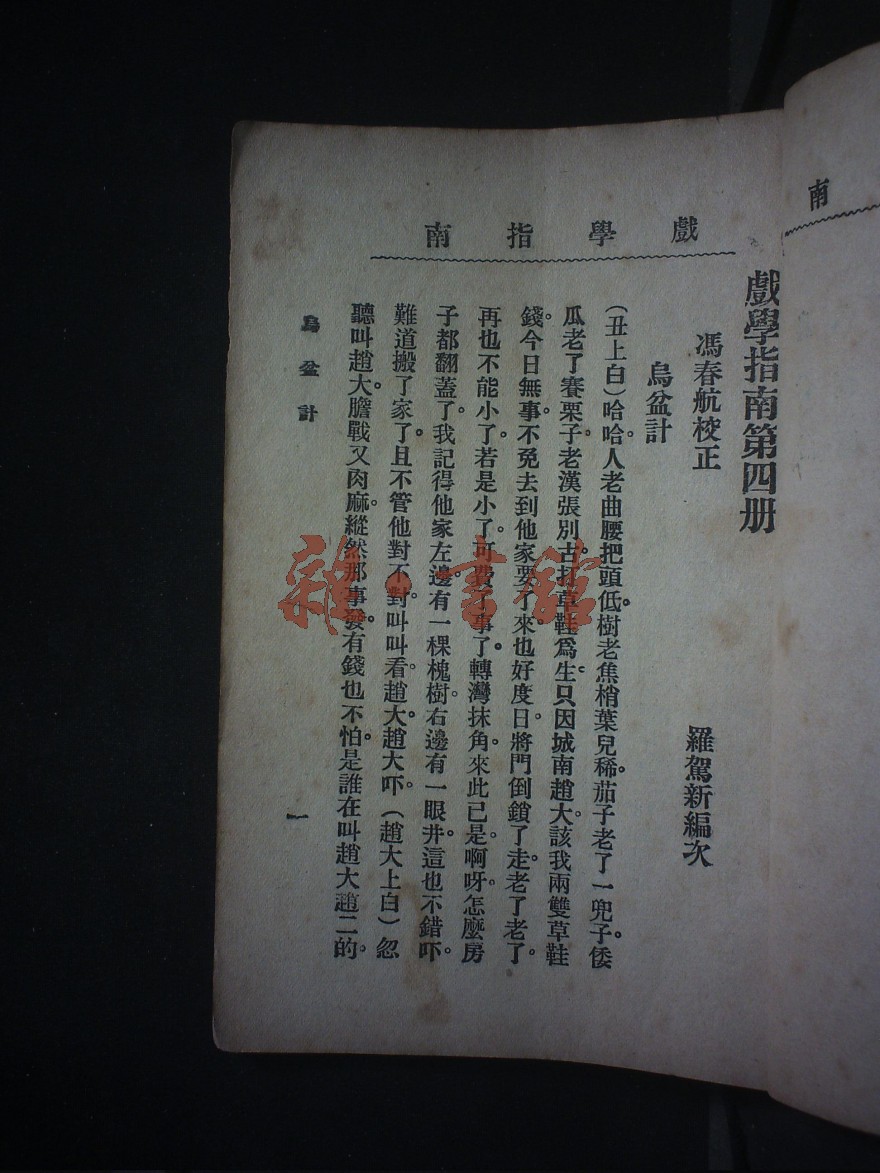 南
戲學指南
戲學指南第四册
馮春航校正
羅駕新編次
烏盆計
（丑上白）哈哈。人老曲腰把頭低。樹老焦梢葉兒稀。茄子老了一兜子。倭
瓜老了賽栗子。老漢張別古。打草鞋爲生。只因城南趙大。該我兩雙草鞋
錢。今日無事。不免去到他家要了來。也好度日。將門倒鎖了走。老了老了。
再也不能小了。若是小了。可費了事了。轉灣抹角。來此已是。啊呀。怎麼房
子都翻蓋了。我記得他家左邊。有一棵槐樹。右邊有一眼井。這也不錯吓。
難道搬了家了。且不管他對不對。叫叫看。趙大。趙大吓。（趙大上白）忽
聽叫趙大。膽戰又肉麻。縱然那事發。有錢也不怕。是誰在叫趙大趙二的。
烏盆計
一
雜·書館